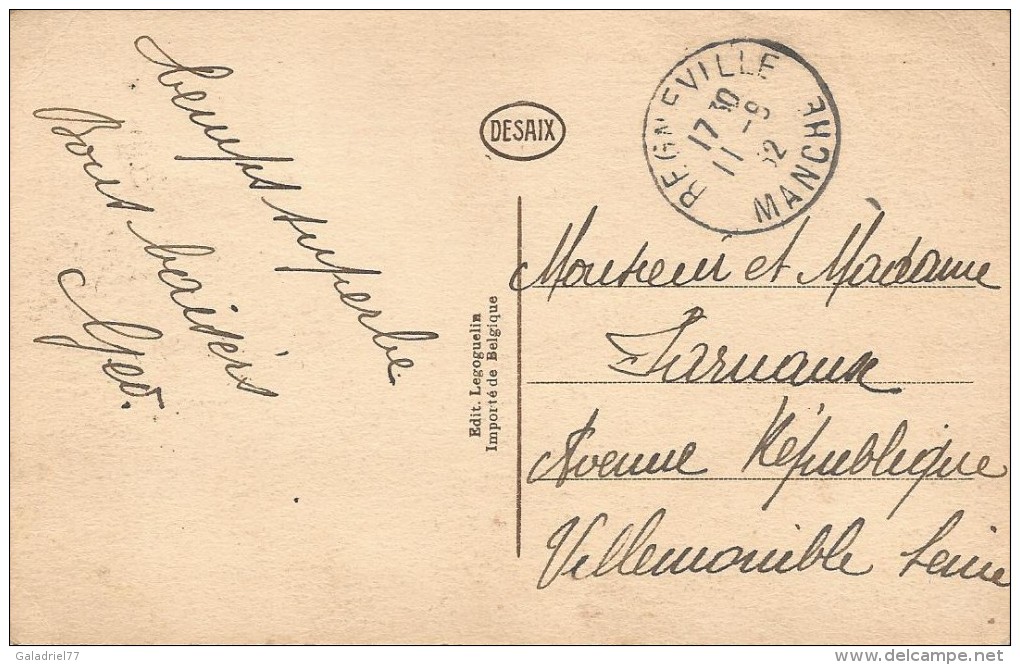 Temps superbe
Bons baisers
Geo.
DESAIX
REGNEVILLE
17 30
11 -9
32
MANCHE
Edit. Legoguelin
Importé de Belgique
Monsieur et Madame
Farnaux
Avenue République
Villemomble Seine
Galadriel77
www.delcampe.net